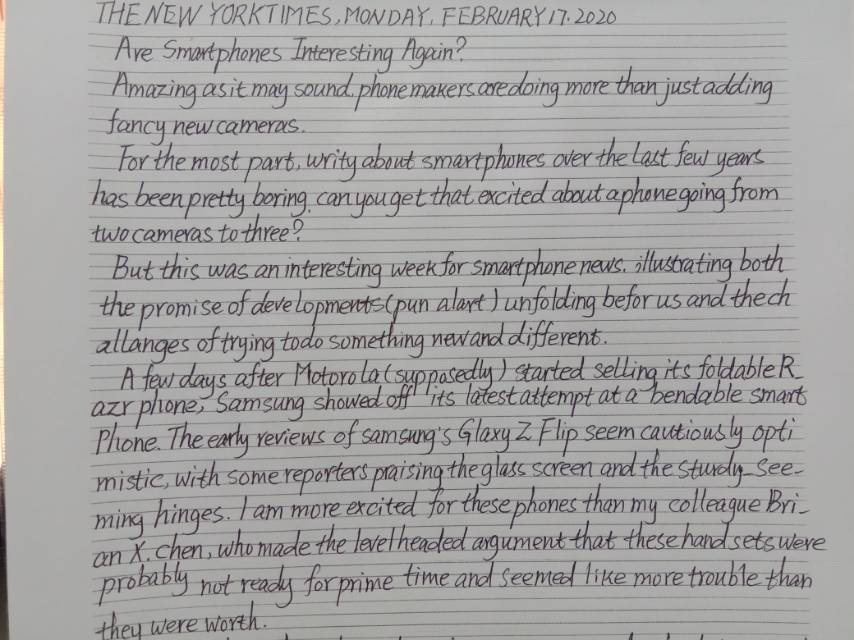 THE NEW YORK TIMES, MONDAY, FEBRUARY 17. 2020
Are Smartphones Interesting Again?
Amazing as it may sound, phone makers are doing more than just adding
fancy new cameras.
For the most part, writy about smartphones over the last few years
has been pretty boring. can you get that excited about a phone going from
two cameras to three?
But this was an interesting week for smartphone news. illustrating both
the promise of developments (pun alart) unfolding befor us and the ch
allanges of trying to do something new and different.
A few days after Motorola (supposedly) started selling its foldable R
azr phone, Samsung showed off its latest attempt at a bendable smart
Phone. The early reviews of samsung's Glaxy Z Flip seem cautiously opti
mistic, with some reporters praising the glass screen and the sturdy-see-
ming hinges. I am more excited for these phones than my colleague Bri-
an X. chen, who made the level headed argument that these hand sets were
probably not ready for prime time and seemed like more trouble than
they were worth.